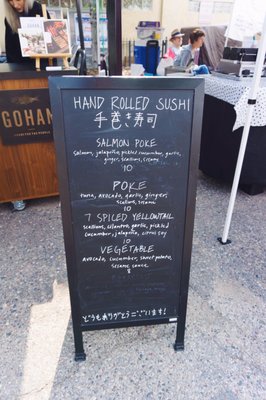 GOHAN
HAND ROLLED SUSHI
手巻き寿司
SALMON POKE
Salmon, jalapeño, pickled cucumber, garlic,
ginger, scallions, sesame
10
POKE
tuna, avocado, garlic, ginger,
scallions, sesame
10
7 SPICED YELLOWTAIL
scallions, cilantro, garlic, pickled
cucumber, jalapeño, citrus soy
10
VEGETABLE
Avocado, cucumber, sweet potato,
sesame sauce
8
どうもありがとうございます!